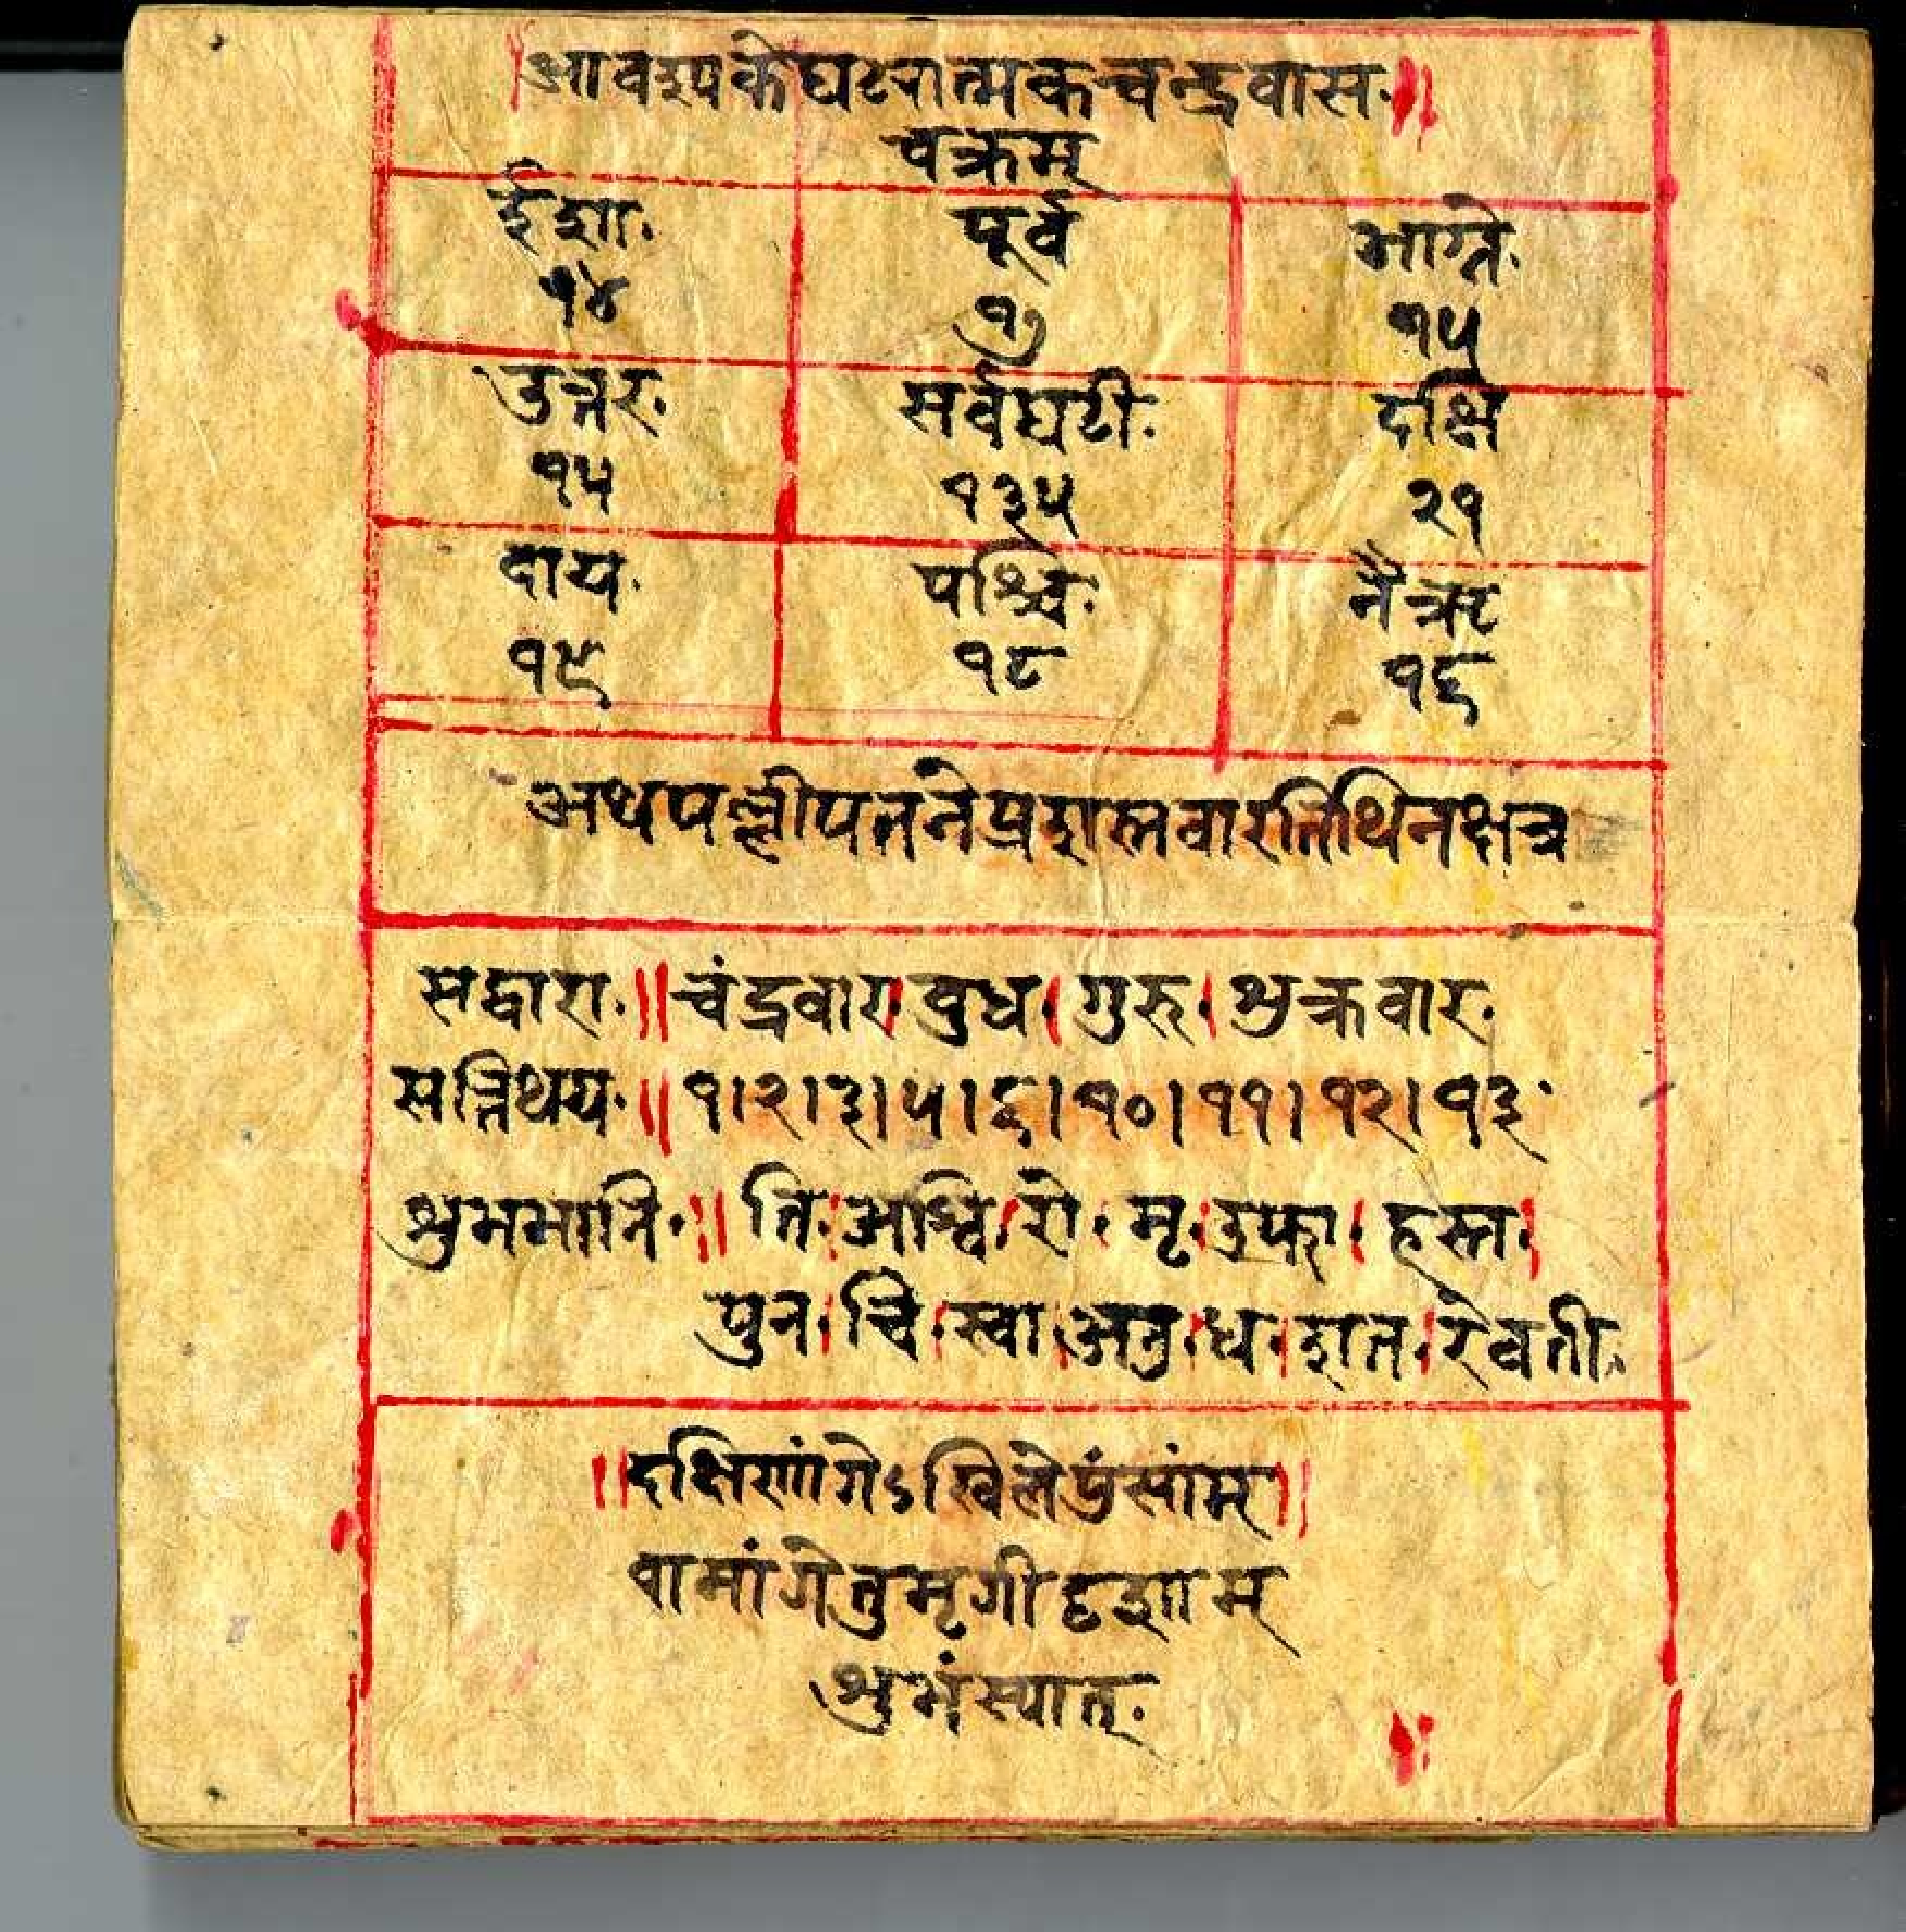 आवश्यकेघट्यात्मकचन्द्रवास॰॥
चक्रम्
ईशा॰ पूर्व आग्ने॰
१४ १७ १५
उत्तर॰ सर्वघटी॰ दक्षि
१५ १३५ २१
वाय॰ पश्चि॰ नैऋ
१९ १८ १६
अथपल्लीपतनेप्रशस्तवारतिथिनक्षत्र
सद्वारा॰॥ चंद्रवार।बुध।गुरु।शुक्रवार॰
सत्तिथय॰॥ १।२।३।५।६।१०।११।१२।१३॰
शुभभानि॰॥ ति॰।अश्वि।रो॰।मृ॰।उफा।हस्त।
पुन।चि।स्वा।अनु।ध।शत।रेवती॰
॥दक्षिणांगेऽखिलेपुंसांम्॥
वामांगेतुमृगीदृशाम्
शुभंस्यात्॰